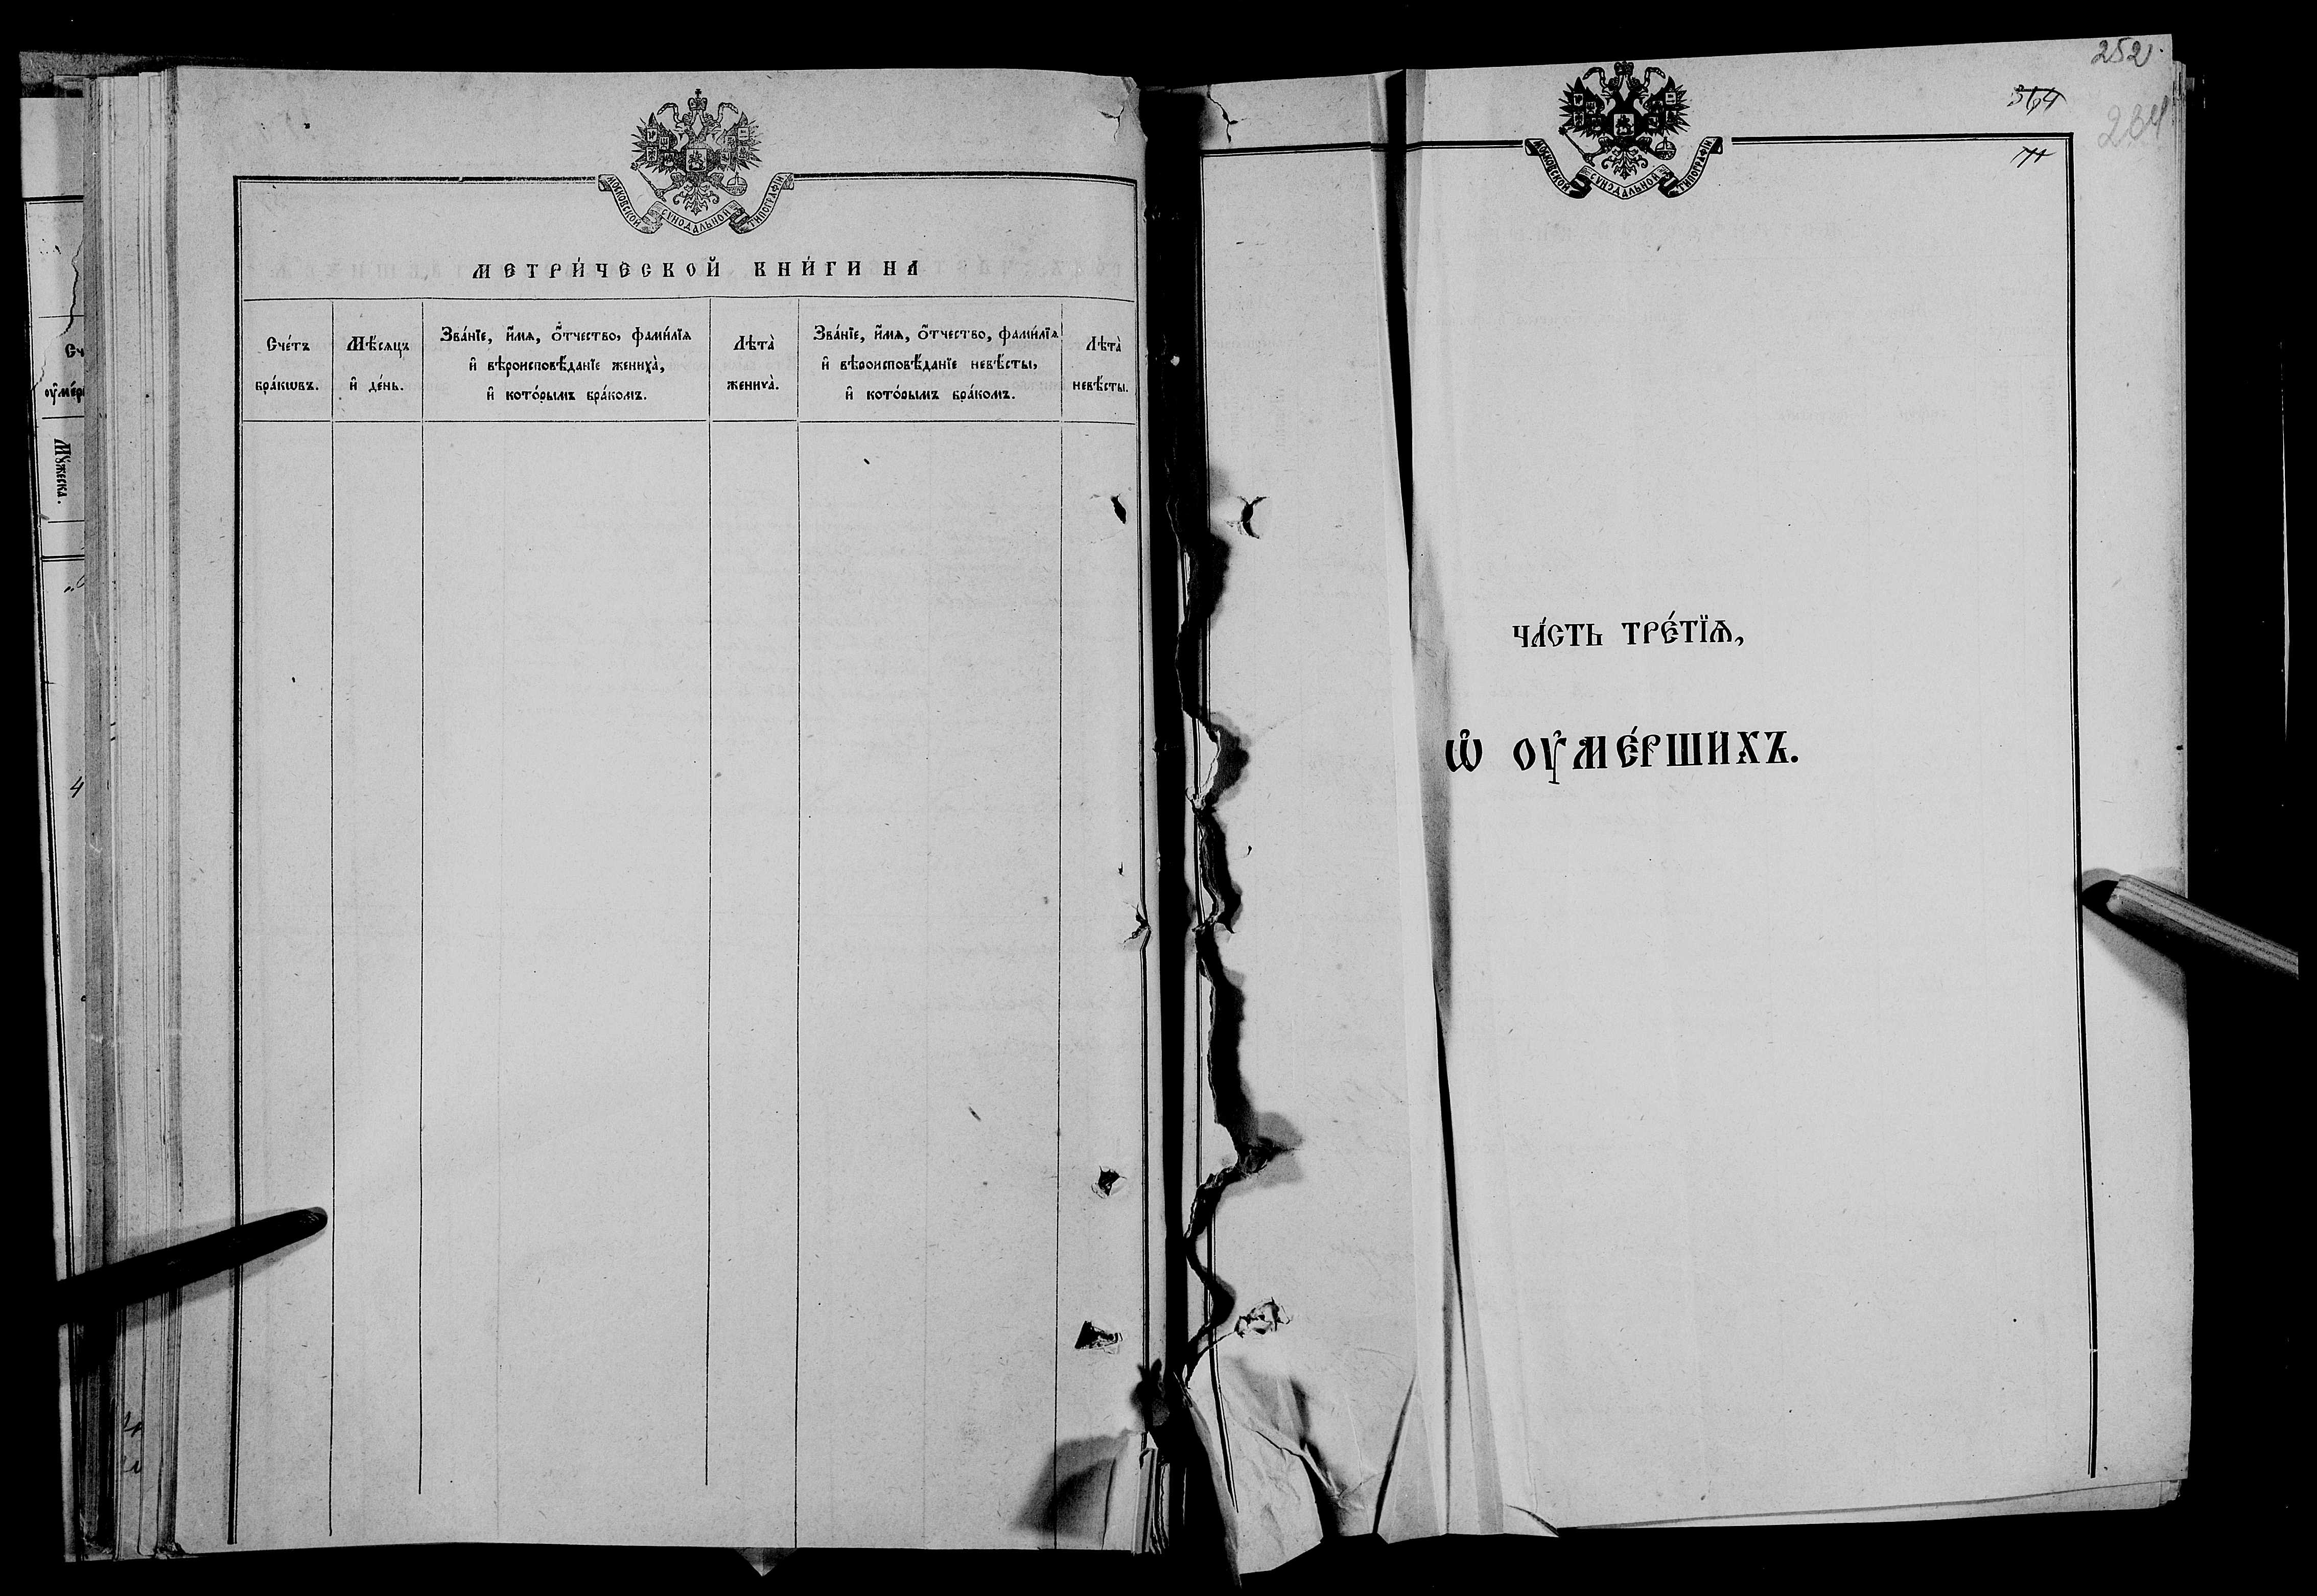 МОСКОВСКОЙ СѴНОДАЛЬНОЙ ТИПОГРАФІИ
МЕТРИ́ЧЕСКОЙ КНИ́ГИ НА
Сче́тъ
бра́кѡвъ.
Мѣ́сяцъ
и҆ де́нь.
Зва́нїе, и҆́мѧ, ѻ҆́тчество, фами́лїѧ
и҆ вѣроисповѣ́данїе жениха̀,
и҆ кото́рымъ бра́комъ.
Лѣта̀
жениха̀.
Зва́нїе, и҆́мѧ, ѻ҆́тчество, фами́лїѧ
и҆ вѣроисповѣ́данїе невѣ́сты,
и҆ кото́рымъ бра́комъ.
Лѣта̀
невѣ́сты.
Сч
оу҆ме́р
Мꙋ́жеска.
4
252
364
234
МОСКОВСКОЙ СѴНОДАЛЬНОЙ ТИПОГРАФІИ
ЧА́СТЬ ТРЕ́ТЇѦ,
Ѡ҆ ОУ҆МЕ́РШИХЪ.